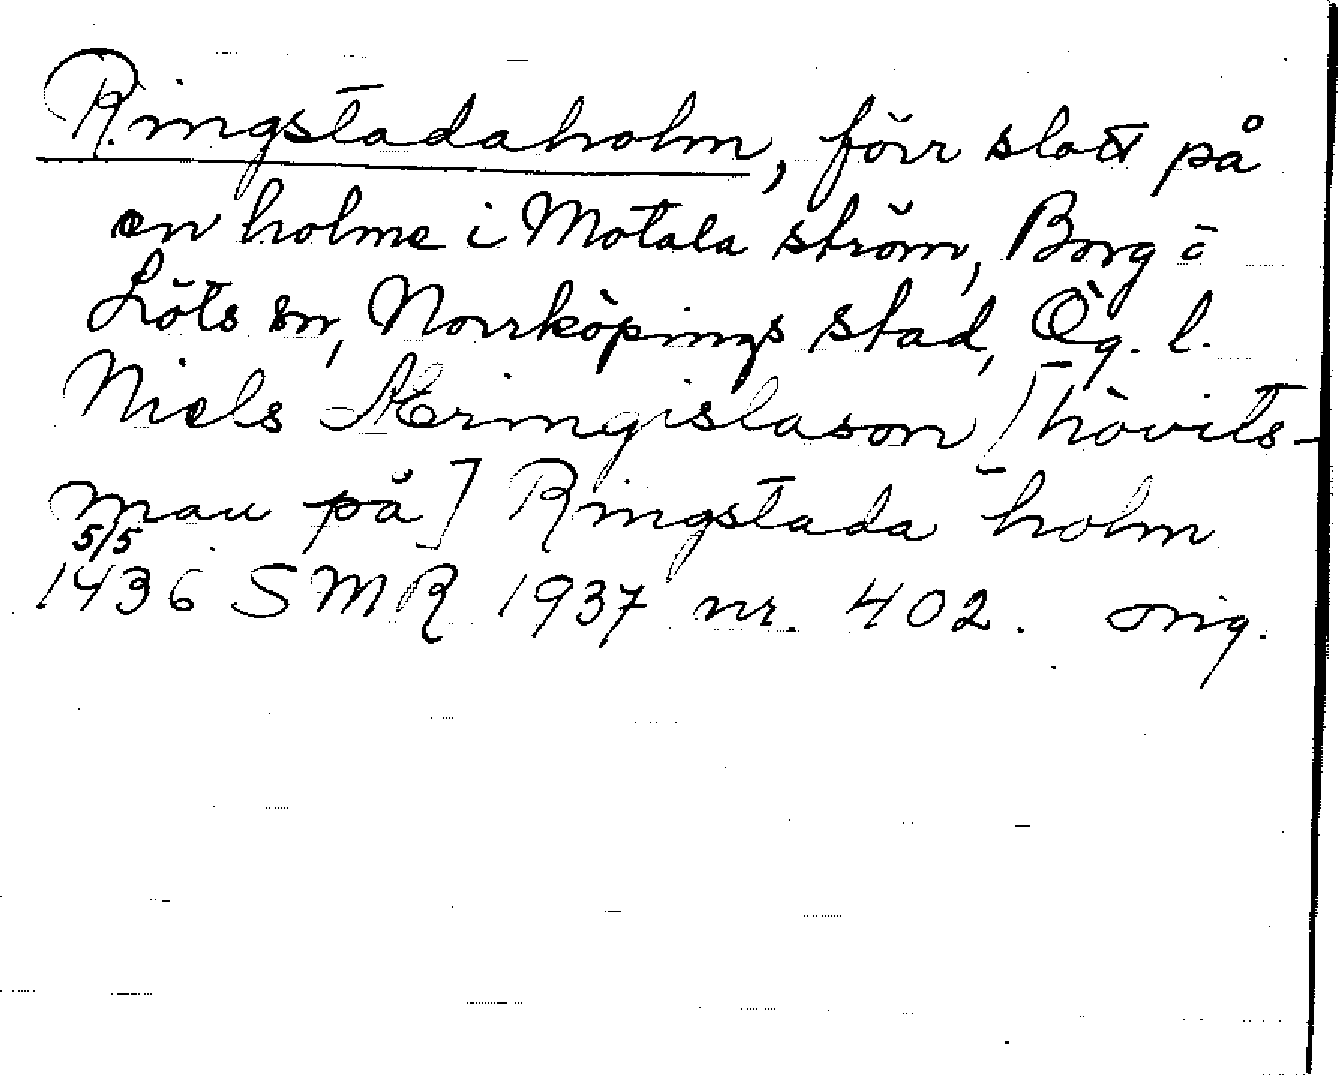 Ringstadaholm, förr slott på
en holme i Motala ström, Borg o
Löts sn, Norrköpings stad, Ög. l.
Niels Æringislason [hövits-
man på] Ringstada holm
5/5
1436 SMR 1937 nr. 402. orig.